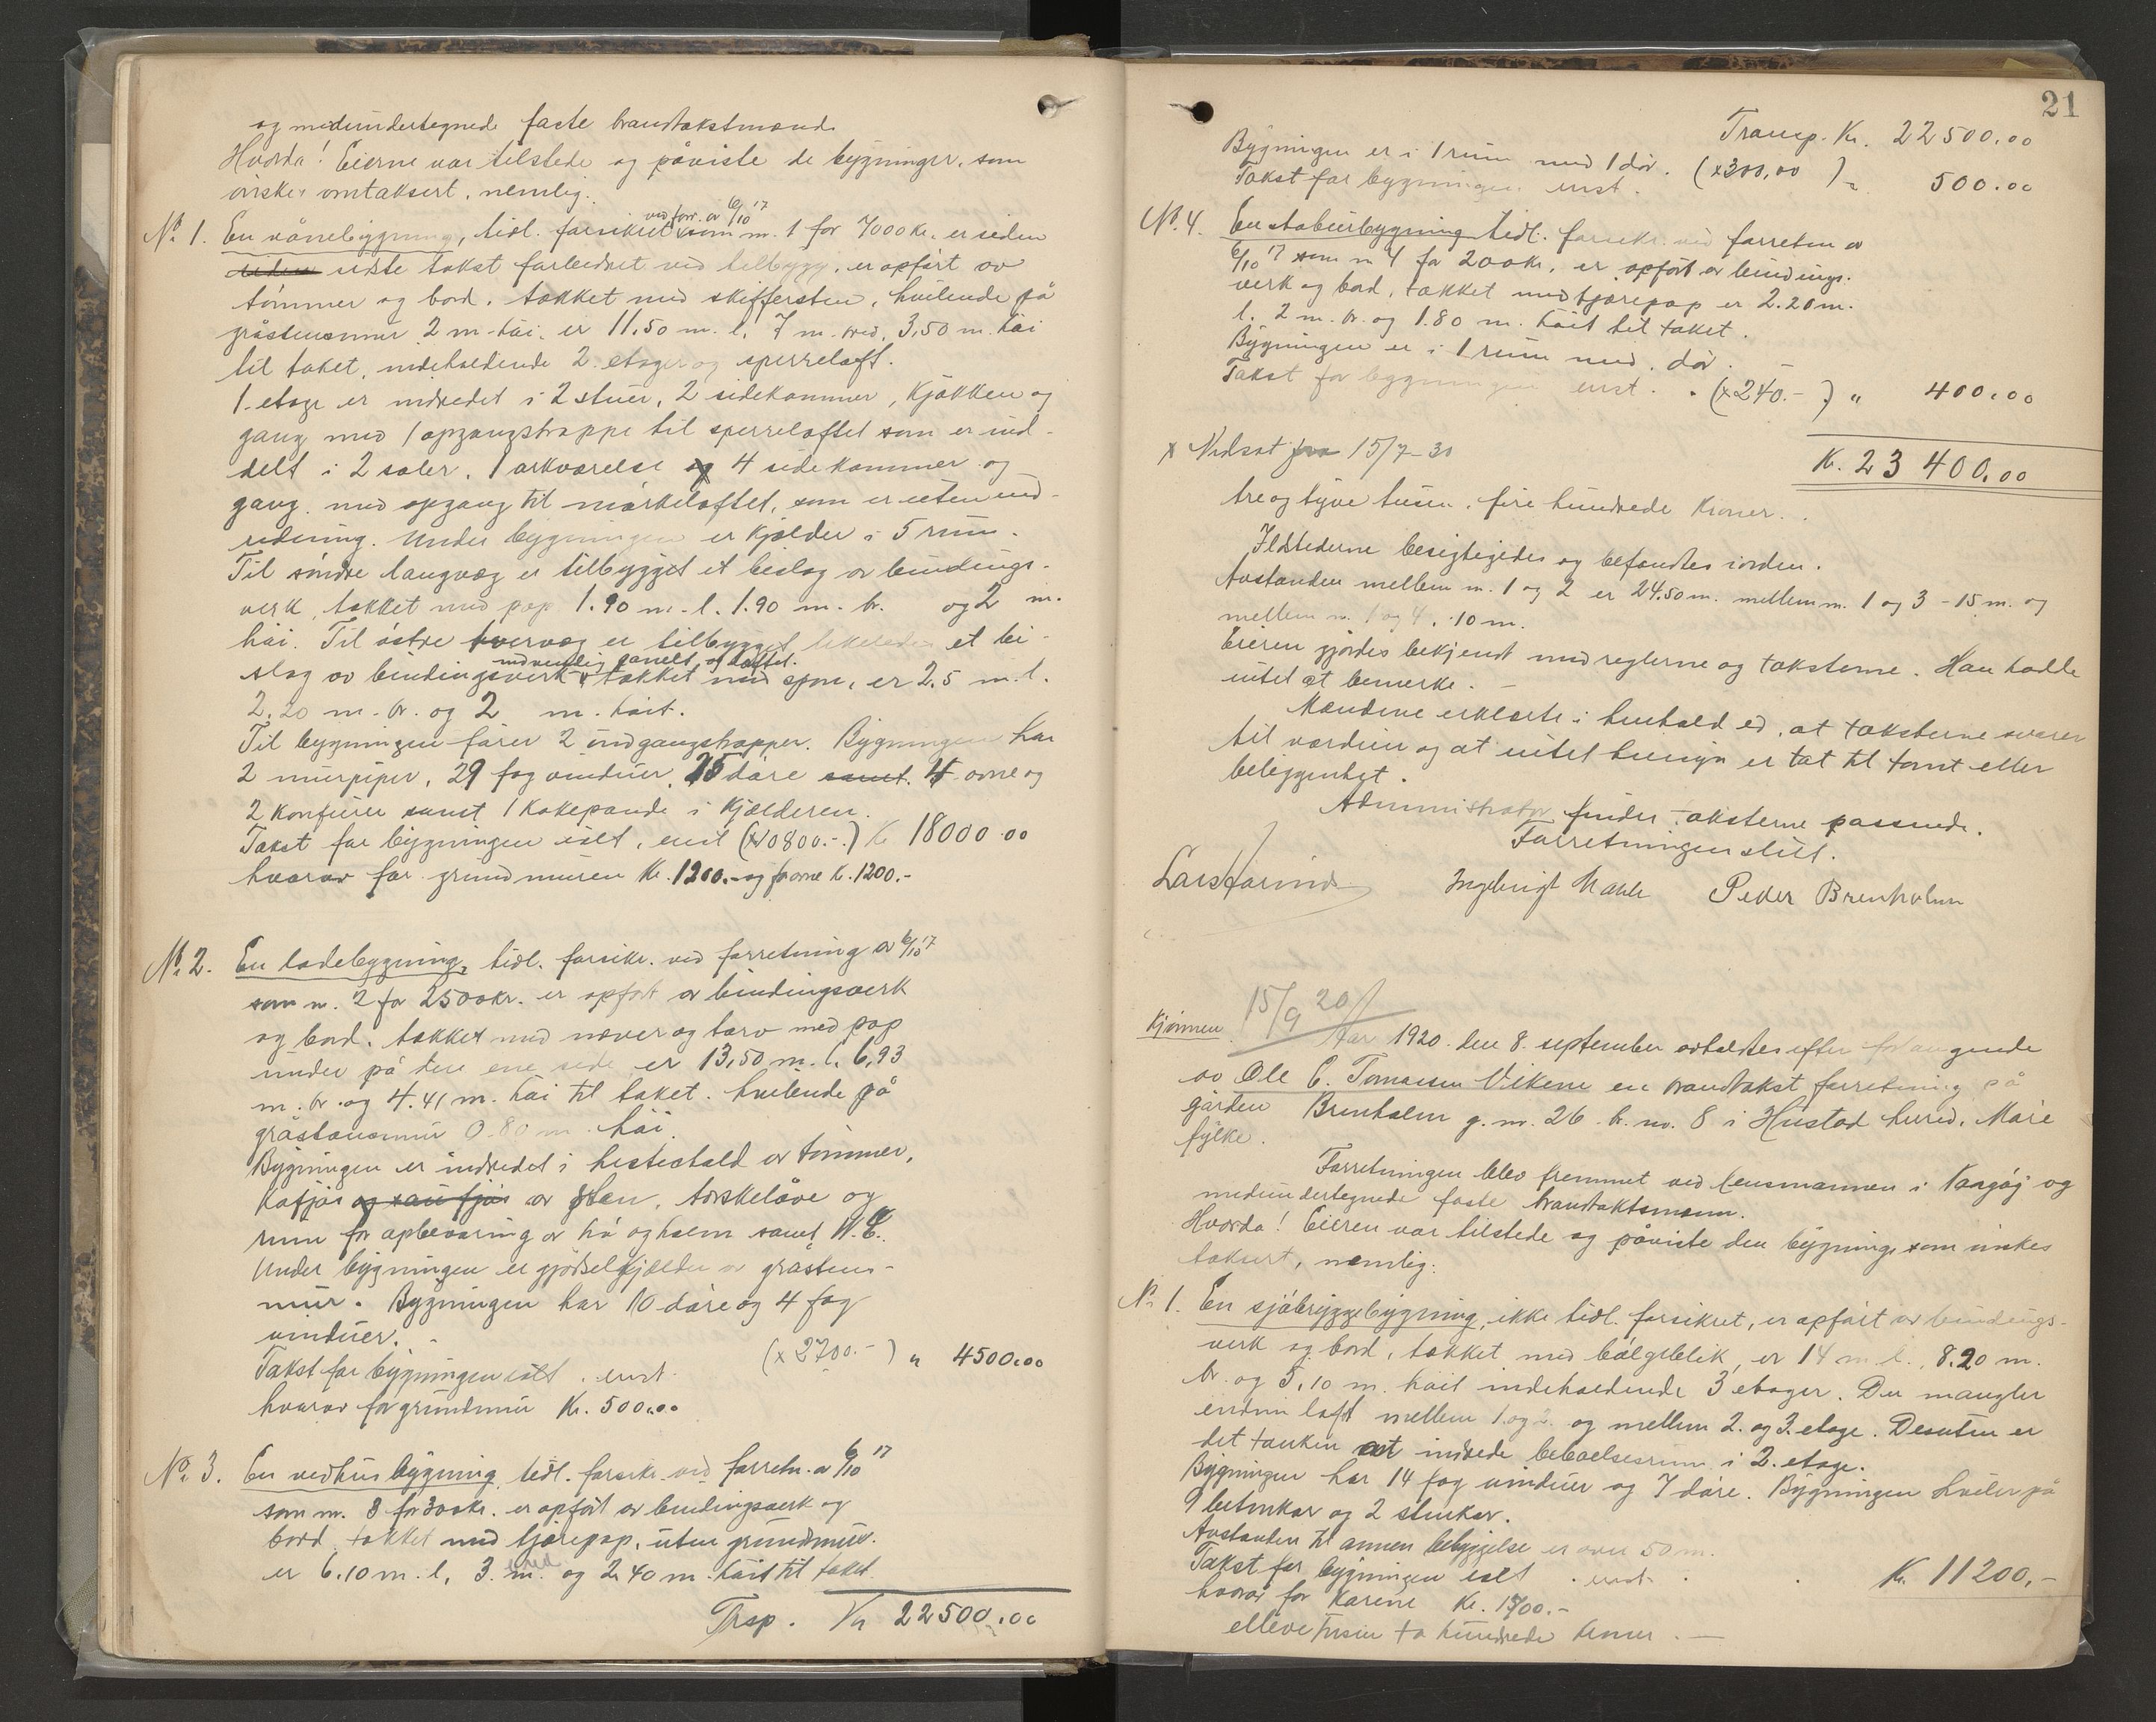 og medundertegnede faste brandtakstmænd.
Hvorda! Eierne var tilstede og påviste de bygninger, som
ønskes omtaksert, nemlig:
№ 1. En vånebygning, tidl. forsikret ved forr. av 6/10 17 som nr. 1 for 7000 kr. er siden
siden sidste takst forbedret ved tilbygg, er opført av
tømmer og bord, tækket med skiffersten, hvilende på
gråstensmur 2 m. høi, er 11,50 m. l. 7 m. bred, 3,50 m. høi
til taket, indeholdende 2 etager og sperreloft.
1. etage er indredet i 2 stuer, 2 sidekammer, kjøkken og
gang med 1 opgangstrappe til sperreloftet som er ind-
delt i 2 saler, 1 arkværelse og 4 sidekammer og
gang, med opgang til mørkeloftet, som er uten ind-
redning. Under bygningen er kjælder i 5 rum.
Til søndre langvæg er tilbygget et bislag av bindings-
verk, tækket med pap 1.90 m. l. 1.90 m. br. og 2 m.
høi. Til østre tvervæg er tilbygget likeledes et bi-
slag av bindingsverk indvendig panelt og loftet. tækket med spon, er 2,5 m. l.
2,20 m. br. og 2 m. høit.
Til bygningen fører 2 indgangstrapper. Bygningen har
2 murpiper, 29 fag vinduer, 25 døre samt 4 ovne og
2 komfurer samt 1 kokepande i kjælderen.
Takst for bygningen ialt, enst (x10800.-) Kr 18000.00
hvorav for grundmuren Kr. 1200.- og for ovne K. 1200.-
№ 2. En ladebygning, tidl. forsikr. ved forretning av 6/10 17
som nr. 2 for 2500 kr. er opført av bindingsverk
og bord, tækket med næver og torv med pap
under på den ene side er 13,50 m. l. 6,93
m. br. og 4.41 m. høi til taket. hvilende på
gråstensmur 0.80 m. høi.
Bygningen er indredet i hestestald av tømmer,
kufjøs og saufjøs av sten, tørskelåve og
rum for opbevaring av hø og halm samt W.C.
Under bygningen er gjødselkjælder av gråstens-
mur. Bygningen har 10 døre og 4 fag
vinduer.
Takst for bygningen ialt. enst. (x 2700.-) " 4500.00
hvorav for grundmur Kr. 500.00
№ 3. En vedhusbygning tidl. forsikr. ved forretn. av 6/10 17
som nr. 3 for 300 kr. er opført av bindingsverk og
bord tækket med tjærepap, uten grundmur.
er 6.10 m. l, 3. m. bred og 2.40 m. høit til taket.
Trsp. Kr 22500.00
21
Transp. Kr. 22500.00
Bygningen er i 1 rum med 1 dør.
Takst for bygningen enst. (x300,00) " 500.00
№ 4. En stabursbygning tidl. forsikr. ved forretn av
6/10 17 som nr 4 for 200 kr, er opført av bindings-
verk og bord, tækket med tjærepap er 2.20 m.
l. 2 m. br. og 1.80 m. høit til taket.
Bygningen er i 1 rum med dør.
Takst for bygningen enst. (x240.-) " 400.00
x Nedsat fra 15/7-30
K. 23 400.00
tre og tyve tusen, fire hundrede kroner.
Ildstederne besigtigedes og befandtes iorden.
Avstanden mellem nr. 1 og 2 er 24.50 m. mellem nr. 1 og 3 - 15 m. og
mellem nr. 1 og 4, 10 m.
Eieren gjordes bekjendt med reglerne og taksterne. Han hadde
intet at bemerke. -
Mændene erklærte i henhold ed, at taksterne svarer
til værdien og at intet hensyn er tat til tomt eller
beliggenhet.
Administrator finder taksterne passende.
Forretningen slut.
Lars Harnnes Ingebrigt Male Peder Brenholm
15/9 20
Kjønnen
Aar 1920 den 8. september avholdtes efter forlangende
av Ole C. Tornæsen Vikene en brandtakst forretning på
gården Brenholm g. nr. 26 br. nr. 8 i Hustad herred, Møre
fylke.
Forretningen blev fremmet ved lensmannen i Vaagøj og
medundertegnede faste brandtakstmenn.
Hvorda! Eieren var tilstede og påviste den bygning som ønskes
taksert, nemlig:
№ 1. En sjøbryggebygning, ikke tidl. forsikret, er opført av bindings-
verk og bord, tækket med bølgeblik, er 14 m. l., 8.20 m.
br. og 5,10 m. høit indeholdende 3 etager. Der mangler
endnu loft mellem 1. og 2. og mellem 2. og 3. etage. Desuten er
det tanken at indrede beboelsesrum i 2. etage.
Bygningen har 14 fag vinduer og 7 døre. Bygningen hviler på
9 betonkar og 2 stenkar.
Avstanden til annen bebyggelse er over 50 m.
Takst for bygningen ialt enst. K. 11200,-
hvorav for karene Kr. 1500.-
elleve tusen to hundrede kroner. -